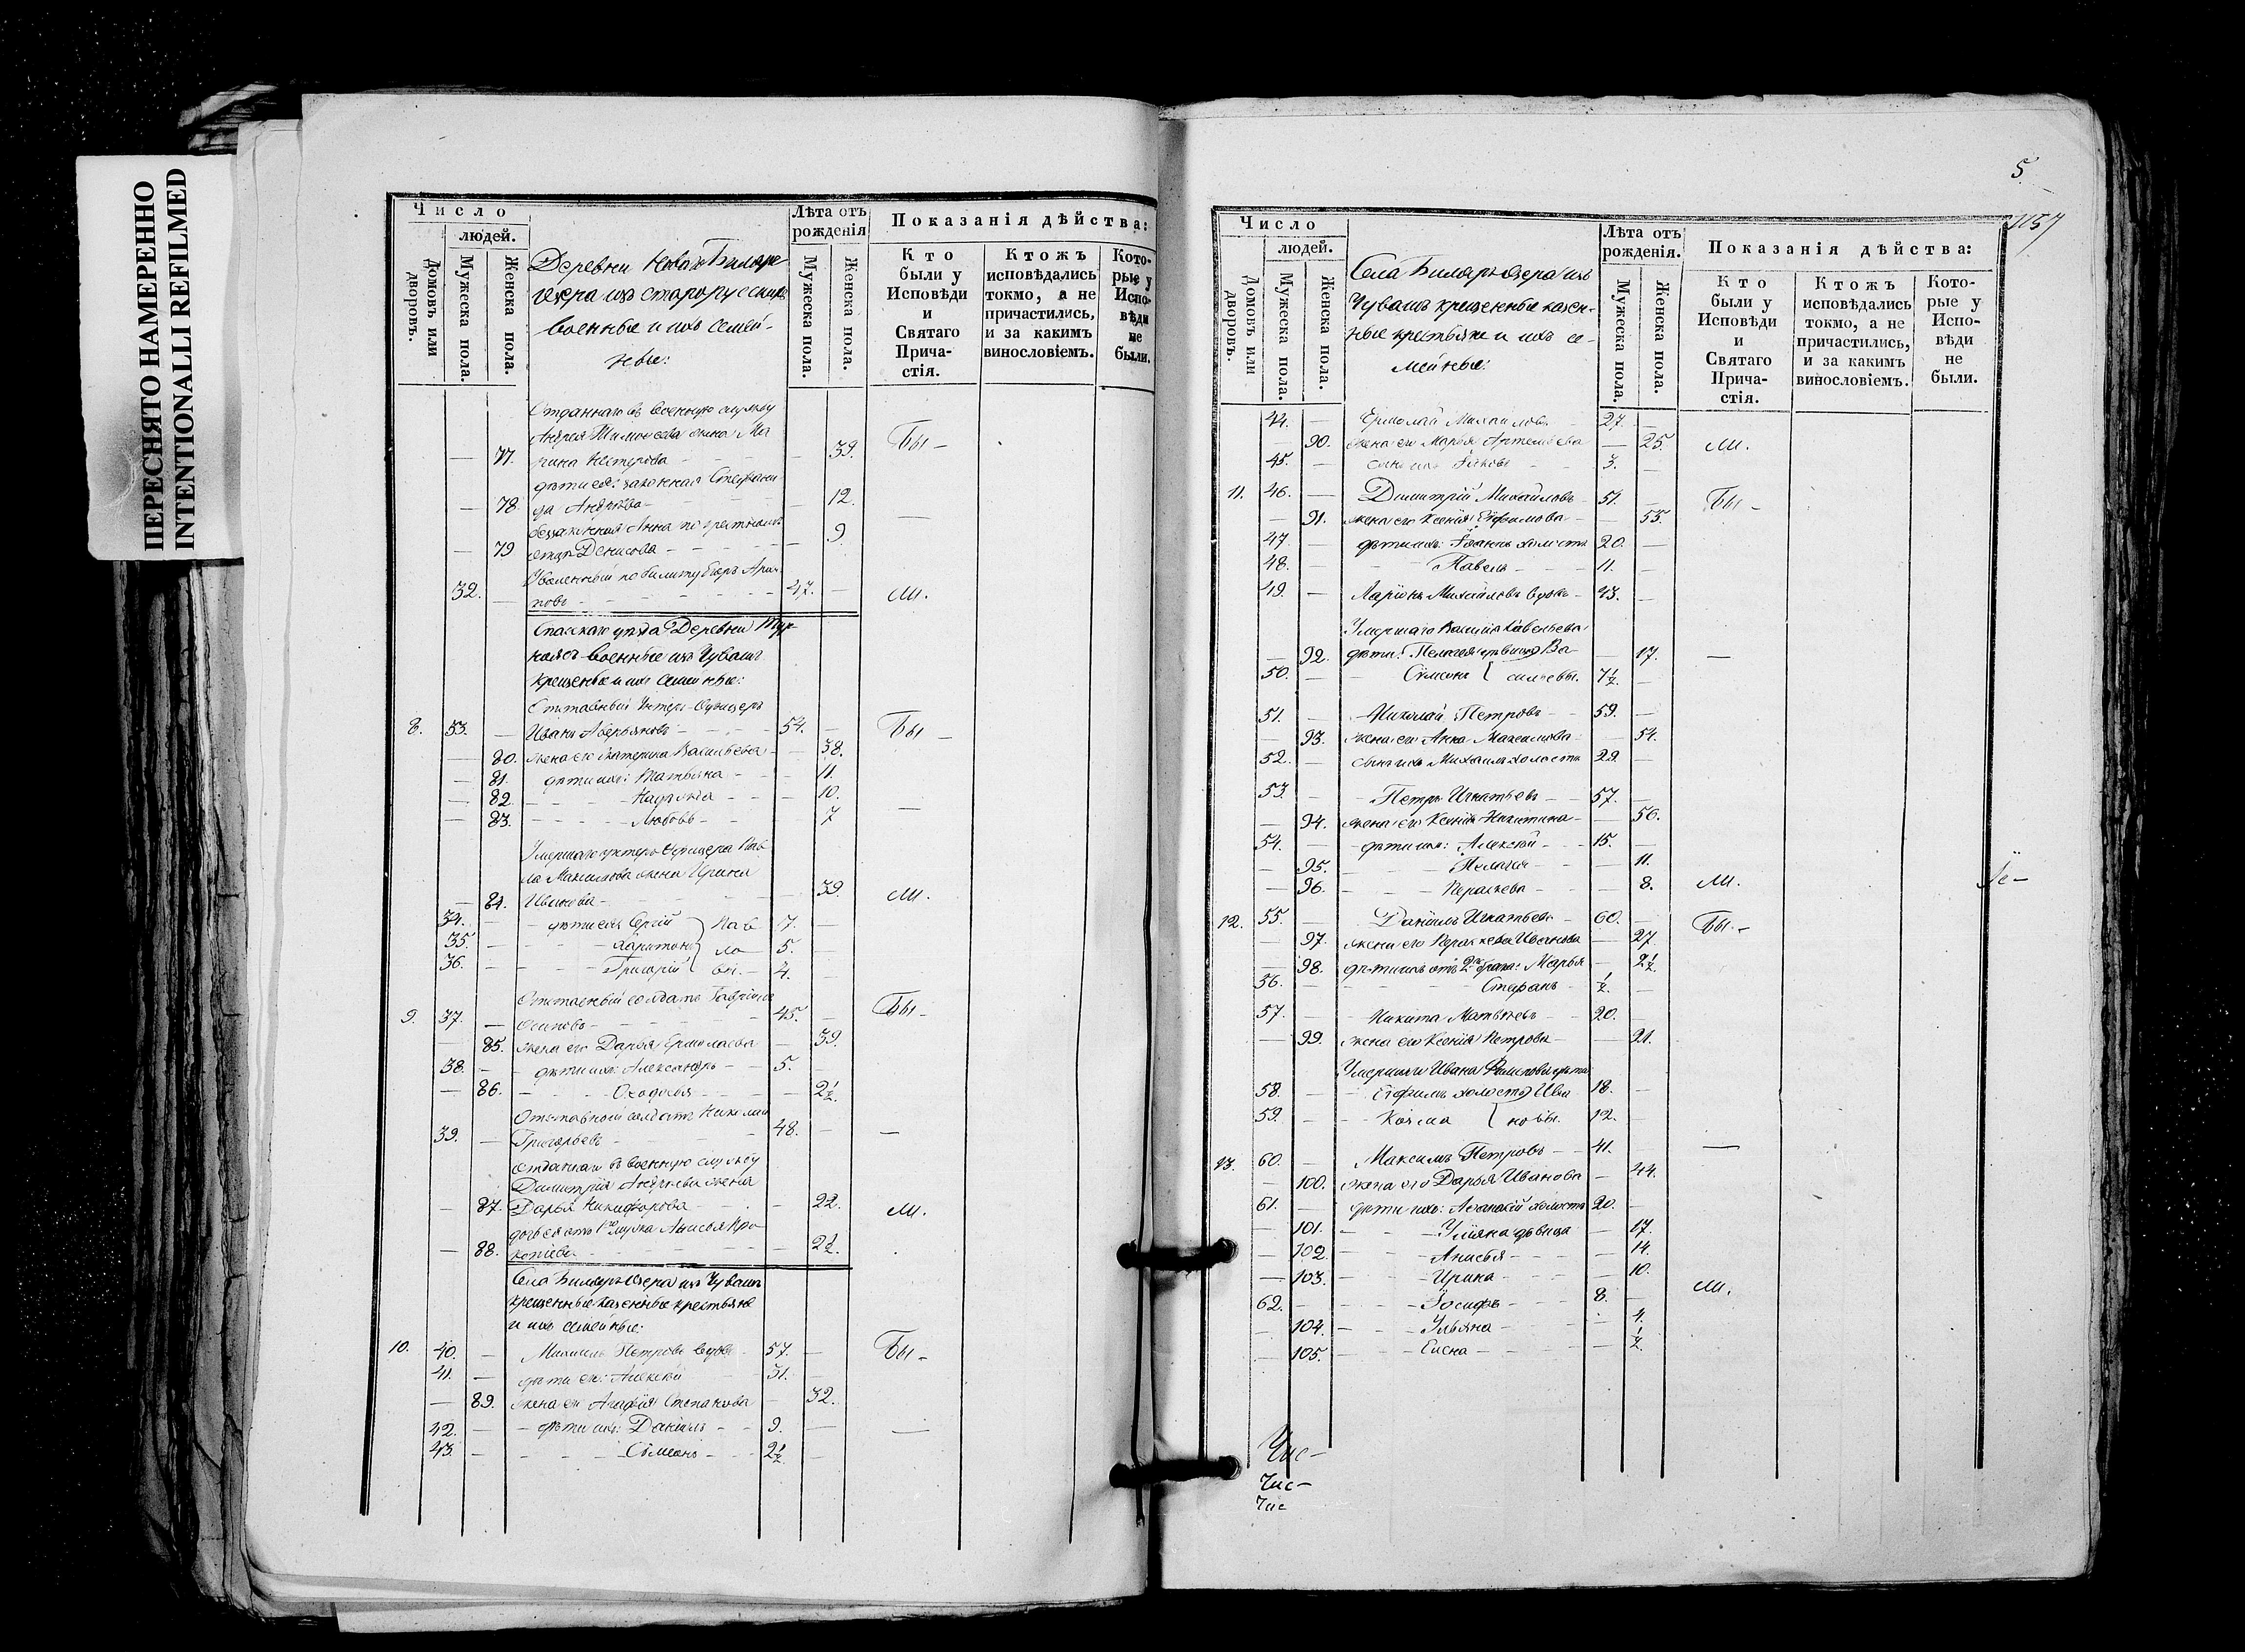 ПЕРЕСНЯТО НАМЕРЕННО
INTENTIONALLI REFILMED
Число
людей.
Домовъ или дворовъ.
Мужеска пола.
Женска пола.
Деревни Новаго Биляръ
Озера изъ старорусскихъ
военные и ихъ семей-
ные:
Лѣта отъ рожденія
Мужеска пола.
Женска пола.
Показанія дѣйства:
Кто были у Исповѣди и Святаго Прича-стія.
Ктожъ исповѣдались токмо, а не причастились, и за какимъ винословіемъ.
Кото-рые у Испо-вѣди не были.
Отданнаго въ военную службу
Андрея Тимофеева жена Ма
— 77. рина Нестерова — 39. Бы —
дѣти ея: законная Стефани
— 78. да Андреева — 12.
беззаконная Анна по крестному
— 79 отцу Денисова — 9. —
Уволенный по билету
32. — 47. — ли.
Спасскаго уѣзда Деревни
военные изъ Чувашъ
крещеные и ихъ семейные:
Отставный Унтеръ-Офицеръ
8. 33. — Иванъ Аверьяновъ 54. Бы —
— 80. жена его Екатерина Васильева — 38.
— 81. дѣти ихъ: Татьяна — 11.
— 82. Надежда — 10.
— 83. Любовь — 7 —
Умершаго унтеръ Офицера Пав
ла Максимова жена Ирина
— 84. Иванова — 39 ли.
34. — дѣти ея Сергій } Пав 7. —
35. — Харитонъ } ло 5. —
36. — Григорій } вы. 4. —
Отставный солдатъ Гавріилъ
9. 37. — Осиповъ — 45. — Бы —
— 85. жена его Дарья Ермолаева — 39.
38. — дѣти ихъ: Александръ — 5. —
— 86. Ѳеодосья — 2½.
Отставной солдатъ Николай
39. — Григорьевъ — 48. — —
Отданнаго въ военную службу
Димитрія Андреева жена
— 87. Дарья Никифорова — 22. ли.
дочь ея отъ 1го мужа Анисья Про
— 88. копіева — 2½.
Села Биляръ Озера изъ Чувашъ
крещенные казенные крестьяне
и ихъ семейные:
10. 40. — Михаилъ Петровъ вдовъ 57. — Бы —
41. — дѣти его: Алексѣй 31. —
— 89. жена его Агафія Степанова — 32.
42. — дѣти ихъ: Даніилъ — 9. — —
43. — Сѵмеонъ — 2½. —
5.
1157
Число
людей.
Домовъ или дворовъ.
Мужеска пола.
Женска пола.
Села Биляръ Озера изъ
Чувашъ крещенные казен-
ные крестьяне и ихъ се-
мейные:
Лѣта отъ рожденія.
Мужеска пола.
Женска пола.
Показанія дѣйства:
Кто были у Исповѣди и Святаго Прича-стія.
Ктожъ исповѣдались токмо, а не причастились, и за какимъ винословіемъ.
Кото-рые у Испо-вѣди не были.
44. — Ермолай Михайловъ 27. —
— 90. жена его Марья Артемьева — 25. ли.
45. — сынъ ихъ Іаковъ — 3. —
11. 46. — Димитрій Михайловъ 51. — Бы —
— 91. жена его Ксенія Ефимова — 55.
47. — дѣти ихъ: Іоаннъ холостъ 20. —
48. — Павелъ — 11. —
49. — Ларіонъ Михайловъ вдовъ — 43. —
Умершаго Василія Савельева
— 92. дѣти: Пелагея дѣвица } Ва — 17. —
50. — Сѵмеонъ } сильевы. 7½. —
51. — Николай Петровъ — 59. —
— 93. жена его Анна Максимова — 54.
52. — сынъ ихъ Михаилъ холостъ 29. —
53. — Петръ Игнатьевъ — 57. —
— 94. жена его Ксенія Никитина — 56.
54. — дѣти ихъ: Алексѣй — 15. —
— 95. Пелагія — 11.
— 96. Параскева — 8. ли.
12. 55. — Даніилъ Игнатьевъ — 60. — Бы. —
— 97. жена его Параскева Иванова — 27.
— 98. дѣти ихъ отъ 2го брака: Марья — 2½.
56. — Стефанъ — ½. —
57. — Никита Матвѣевъ — 20. —
— 99. жена его Ксенія Петрова — 21.
Умершаго Ивана Филипова дѣти
58. — Ефимъ холостъ } Ива 18. —
59. — Козма } новы. 12. —
13. 60. — Максимъ Петровъ — 41. — —
— 100. жена его Дарья Иванова — 44.
61. — дѣти ихъ: Аѳанасій холостъ 20. —
— 101. Уліяна дѣвица — 17.
— 102. Анисья — 14.
— 103. Ирина — 10.
62. — Іосифъ — 8. — ли.
— 104. Ульяна — 4.
— 105. Елена — ½.
Чис—
Чис—
Чис